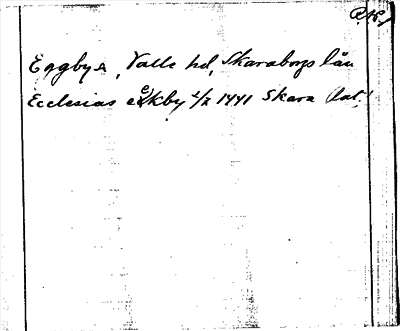 P.Ar.
Eggby s, Valle hd, Skaraborgs län
Ecclesias ekby 2/2 1441 Skara